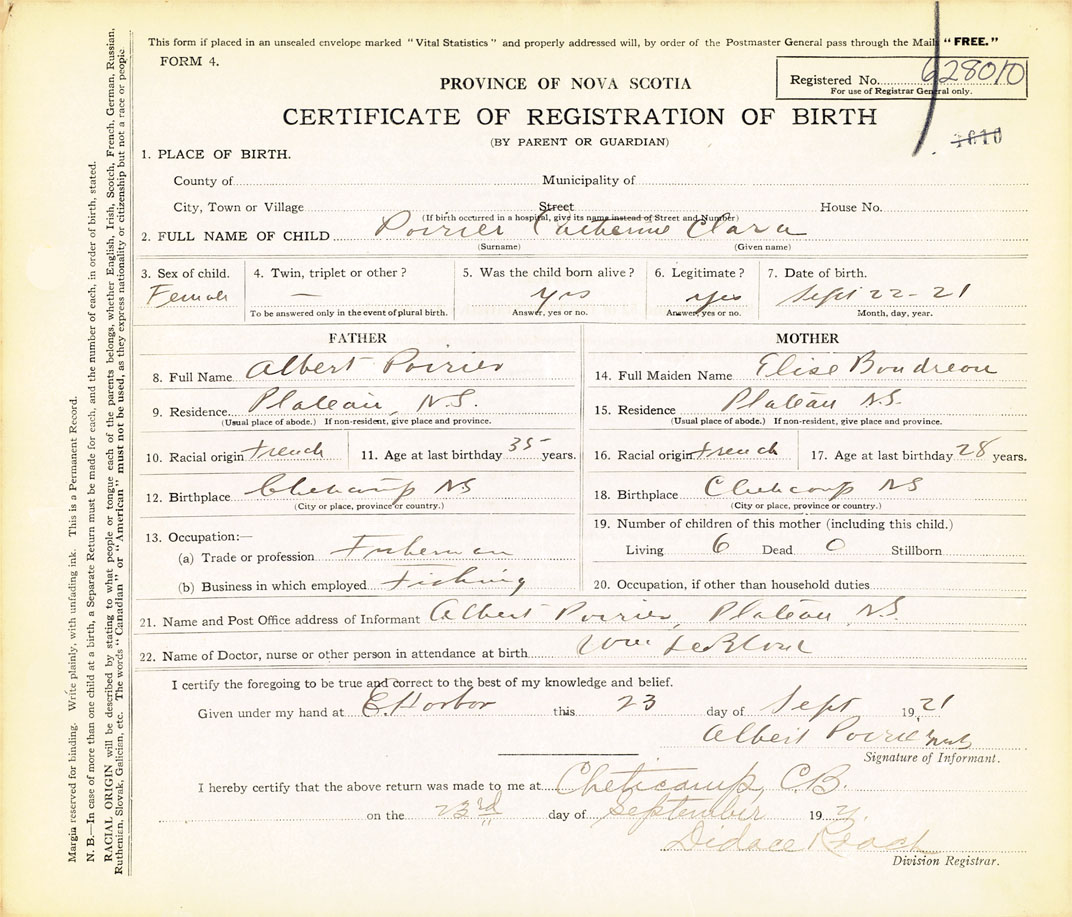 This form if placed in an unsealed envelope marked "Vital Statistics" and properly addressed will, by order of the Postmaster General pass through the Mail "FREE."
FORM 4.
Registered No. 628010
For use of Registrar General only.
PROVINCE OF NOVA SCOTIA
CERTIFICATE OF REGISTRATION OF BIRTH
(BY PARENT OR GUARDIAN)
1. PLACE OF BIRTH.
County of Municipality of
City, Town or Village Street House No.
(If birth occurred in a hospital, give its name instead of Street and Number)
2. FULL NAME OF CHILD Poirier Catherine Clara
(Surname) (Given name)
3. Sex of child. 4. Twin, triplet or other? 5. Was the child born alive? 6. Legitimate? 7. Date of birth.
Female — yes yes Sept 22-21
To be answered only in the event of plural birth. Answer, yes or no. Answer, yes or no. Month, day, year.
FATHER
8. Full Name Albert Poirier
9. Residence Plateau, N.S.
(Usual place of abode.) If non-resident, give place and province.
10. Racial origin French 11. Age at last birthday 35 years.
12. Birthplace Cheticamp NS
(City or place, province or country.)
13. Occupation:—
(a) Trade or profession Fisherman
(b) Business in which employed Fishing
MOTHER
14. Full Maiden Name Elise Boudreau
15. Residence Plateau N.S.
(Usual place of abode.) If non-resident, give place and province.
16. Racial origin French 17. Age at last birthday 28 years.
18. Birthplace Cheticamp NS
(City or place, province or country.)
19. Number of children of this mother (including this child.)
Living 6 Dead 0 Stillborn
20. Occupation, if other than household duties
21. Name and Post Office address of Informant Albert Poirier, Plateau, N.S.
22. Name of Doctor, nurse or other person in attendance at birth Wm LeBlanc
I certify the foregoing to be true and correct to the best of my knowledge and belief.
Given under my hand at E. Harbor this 23 day of Sept 1921
Albert Poirier
Signature of Informant.
I hereby certify that the above return was made to me at Cheticamp, C.B.
on the 23rd day of September 192
Didace Roach
Division Registrar.
Margin reserved for binding. Write plainly, with unfading ink. This is a Permanent Record.
N. B.—In case of more than one child at a birth, a Separate Return must be made for each, and the number of each, in order of birth, stated.
RACIAL ORIGIN will be described by stating to what people or tongue each of the parents belongs, whether English, Irish, Scotch, French, German, Russian,
Ruthenian, Slovak, Galician, etc. The words "Canadian" or "American" must not be used, as they express nationality or citizenship but not a race or people